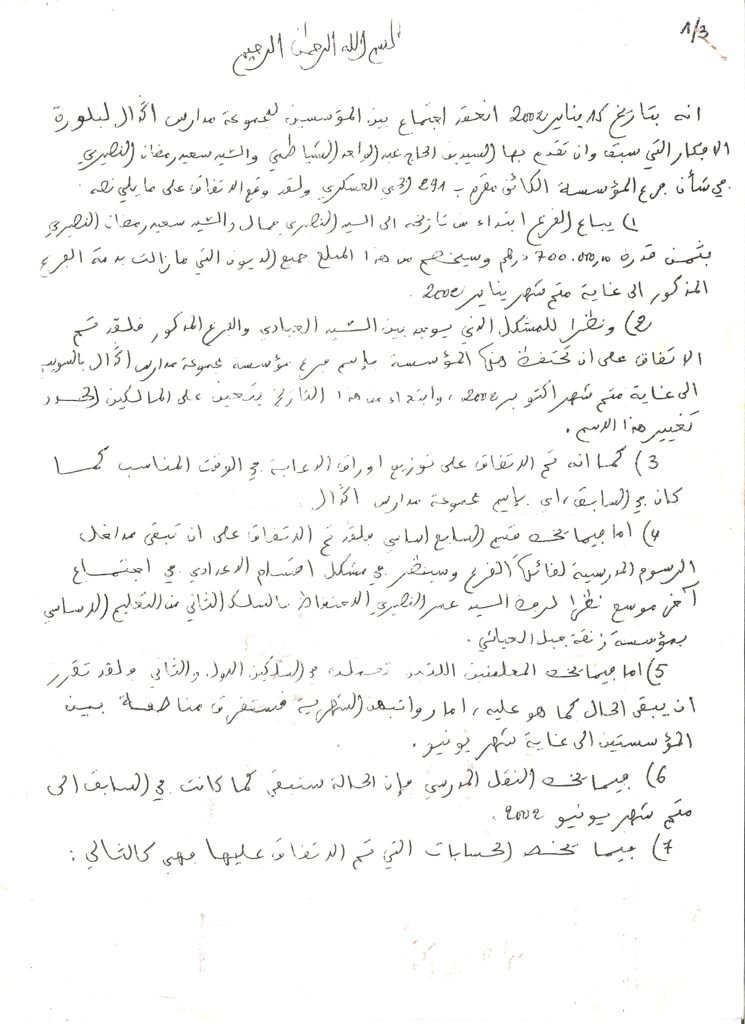 1/3
بسم الله الرحمان الرحيم
انه بتاريخ 15 يناير 2002 انعقد اجتماع بين المؤسسين لمجموعة مدارس اكدال لبلورة
الافكار التي سبق وان تقدم بها السيدين الحاج عبد الواحد الشياظمي والسيد سعيد رمضان النصيري
في شأن فرع المؤسسة الكائن مقره ب 291 الحي العسكري ولقد وقع الاتفاق على ما يلي نصه
1) يباع الفرع ابتداء من تاريخه الى السيد النصيري جمال والسيد سعيد رمضان النصيري
بثمن قدره 700.000,00 درهم وسيخصم من هذا المبلغ جميع الديون التي ما زالت بذمة الفرع
المذكور الى غاية متم شهر يناير 2002.
2) ونظرا للمشكل الذي يوجد بين السيد العبادي والفرع المذكور فلقد تم
الاتفاق على ان تحتفظ هذه المؤسسة بإسم فرع مؤسسة مجموعة مدارس اكدال بالسويسي
الى غاية متم شهر اكتوبر 2002، وابتداء من هذا التاريخ يتعين على المالكين الجدد
تغيير هذا الاسم.
3) كما انه تم الاتفاق على توزيع اوراق الدعاية في الوقت المناسب كما
كان في السابق، اي بإسم مجموعة مدارس اكدال
4) اما فيما يخص قسم السابع اساسي فلقد تم الاتفاق على ان تبقى مداخل
الرسوم المدرسية لفائدة الفرع وسينظر في مشكل اقسام الاعدادي في اجتماع
آخر موسع نظرا لرفض السيد عمر النصيري الاحتفاظ بالسلك الثاني من التعليم الاساسي
بمؤسسة زنقة جبل العياشي.
5) اما فيما يخص المعلمين اللذين في السلكين الاول والثاني فلقد تقرر
ان يبقى الحال كما هو عليه، اما رواتبهم الشهرية فستفرق مناصفة بين
المؤسستين الى غاية شهر يونيو.
6) فيما يخص النقل المدرسي فإن الحالة ستبقى كما كانت في السابق الى
متم شهر يونيو 2002.
7) فيما يخص الحسابات التي تم الاتفاق عليها فهي كالتالي: